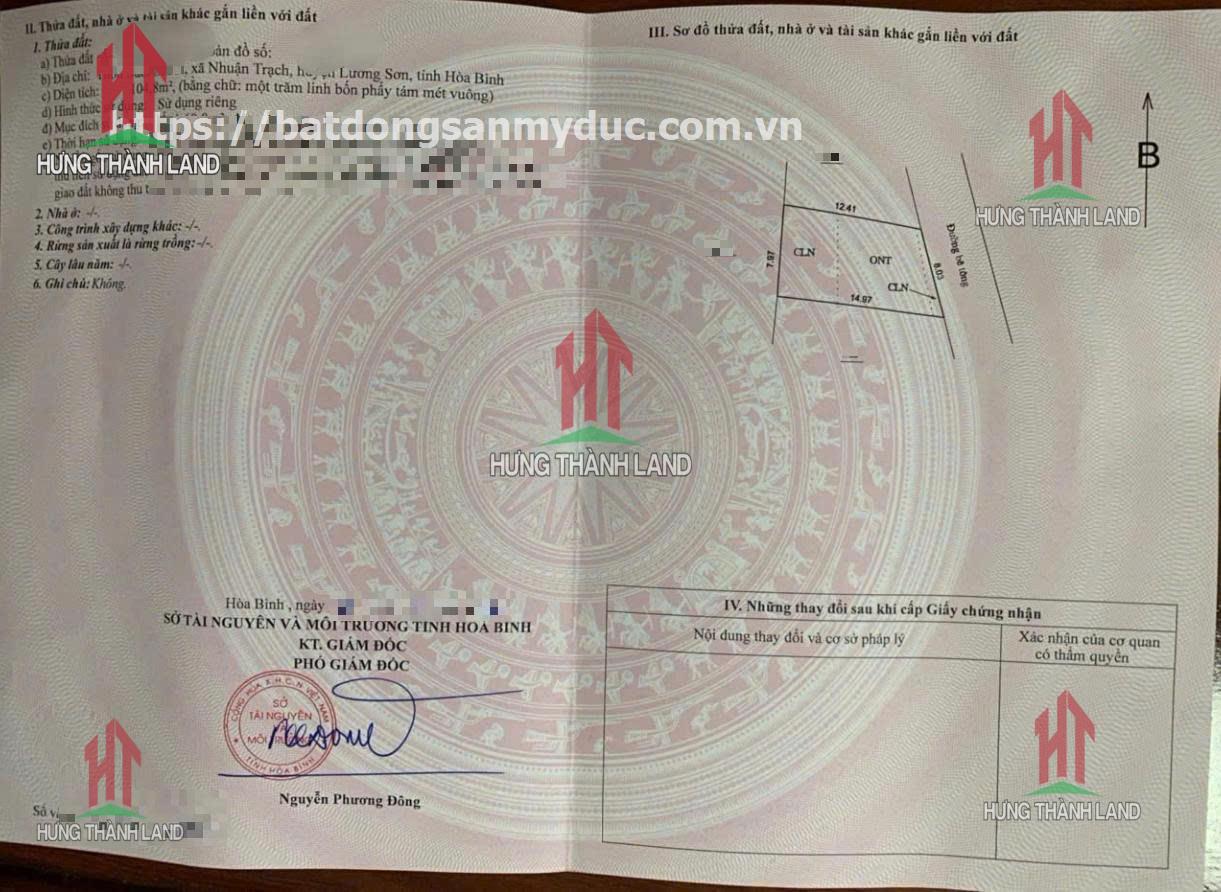 II. Thửa đất, nhà ở và tài sản khác gắn liền với đất
1. Thửa đất:
a) Thửa đất bản đồ số:
b) Địa chỉ: , xã Nhuận Trạch, huyện Lương Sơn, tỉnh Hòa Bình
c) Diện tích: 104,8m², (bằng chữ: một trăm linh bốn phẩy tám mét vuông)
d) Hình thức sử dụng: Sử dụng riêng
đ) Mục đích
https://batdongsanmyduc.com.vn
e) Thời hạn sử dụng
HƯNG THÀNH LAND
giao đất không thu
2. Nhà ở: -/-.
3. Công trình xây dựng khác: -/-.
4. Rừng sản xuất là rừng trồng: -/-.
5. Cây lâu năm: -/-.
6. Ghi chú: Không.
III. Sơ đồ thửa đất, nhà ở và tài sản khác gắn liền với đất
B
HƯNG THÀNH LAND
12.41
7.97
CLN
ONT
CLN
8.03
Đường bê tông
14.97
HƯNG THÀNH LAND
Hòa Bình , ngày
SỞ TÀI NGUYÊN VÀ MÔI TRƯỜNG TỈNH HÒA BÌNH
KT. GIÁM ĐỐC
PHÓ GIÁM ĐỐC
CỘNG HÒA X.H.C.N VIỆT NAM
SỞ
TÀI NGUYÊN
MÔI TRƯỜNG
TỈNH HÒA BÌNH
Nguyễn Phương Đông
Số v
HƯNG THÀNH LAND
IV. Những thay đổi sau khi cấp Giấy chứng nhận
Nội dung thay đổi và cơ sở pháp lý
Xác nhận của cơ quan
có thẩm quyền
HƯNG THÀNH LAND